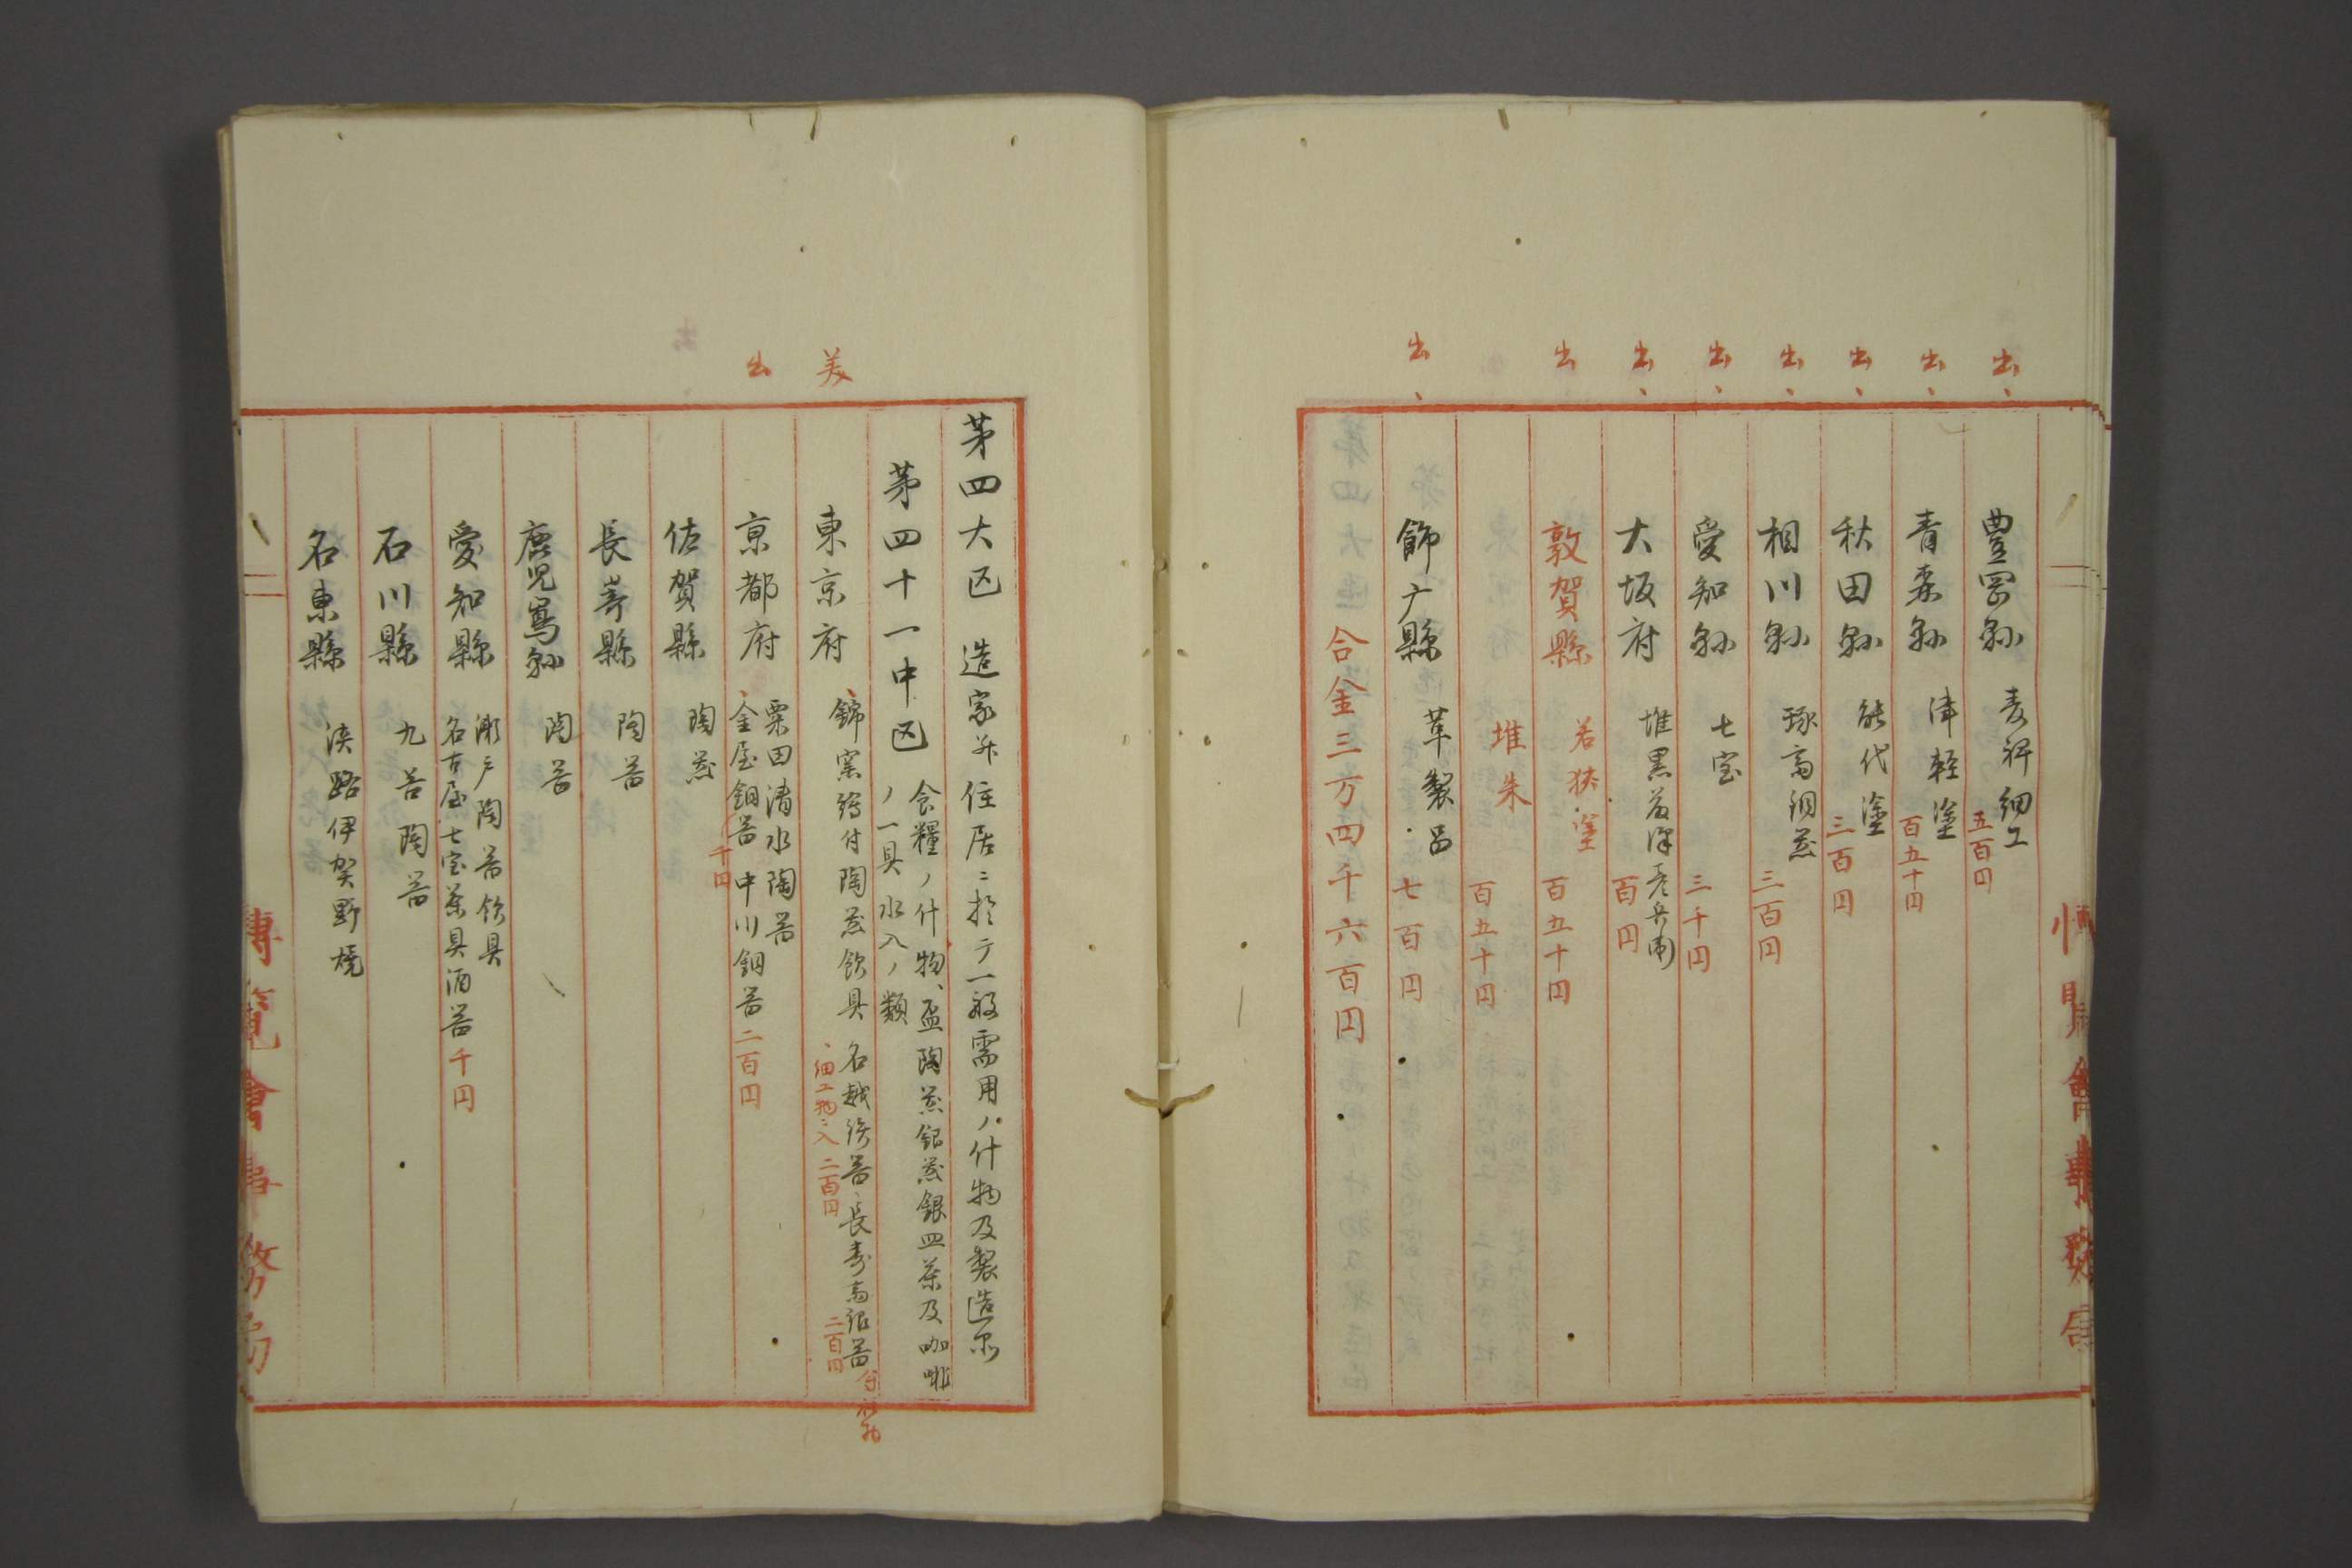 出、
豊岡縣 麦稈細工 五百円
出、
青森縣 津軽塗 百五十円
出、
秋田縣 能代塗 三百円
出、
相川縣 琢斎銅器 三百円
出、
愛知縣 七宝 三千円
出、
大坂府 堆黒 百円
出
敦賀縣 若狭塗 百五十円
堆朱 百五十円
出、
飾广縣 革製品 七百円
合金三万四千六百円
第四大区 造家并住居ニ於テ一般需用ノ什物及製造品
第四十一中区 食糧ノ什物、盃陶器銀器銀皿茶及咖啡
ノ一具水入ノ類
美
東京府 錦窯絵付陶器飲具
、細工物ニ入 二百円
二百円
出
京都府 粟田清水陶器
、金屋銅器 千円 中川銅器 二百円
佐賀縣 陶器
長嵜縣 陶器
鹿児嶌縣 陶器
愛知縣 瀬戸陶器飲具
名古屋七宝茶具酒器 千円
石川縣 九谷陶器
名東縣 淡路伊賀野焼
博覧會事務局